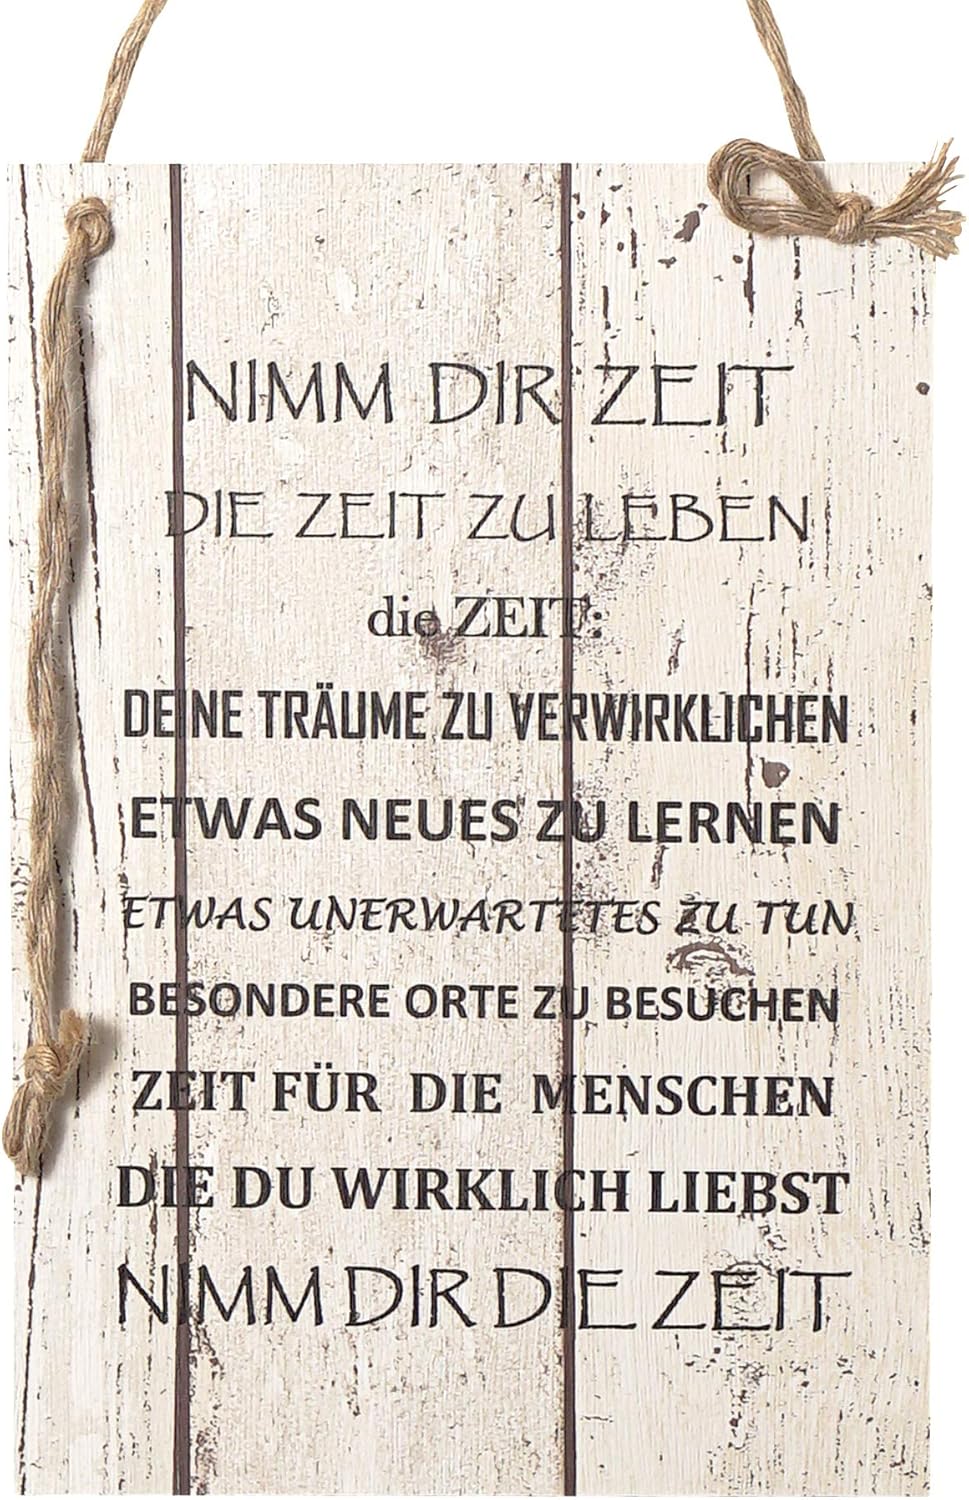 NIMM DIR ZEIT
DIE ZEIT ZU LEBEN
die ZEIT:
DEINE TRÄUME ZU VERWIRKLICHEN
ETWAS NEUES ZU LERNEN
ETWAS UNERWARTETES ZU TUN
BESONDERE ORTE ZU BESUCHEN
ZEIT FÜR DIE MENSCHEN
DIE DU WIRKLICH LIEBST
NIMM DIR DIE ZEIT